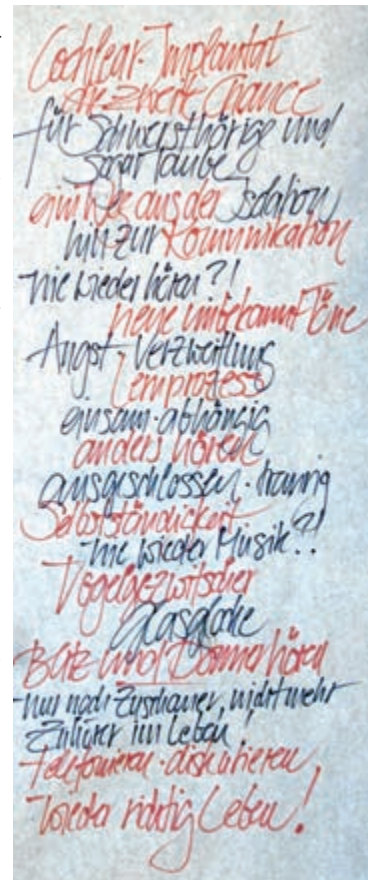 Cochlear-Implantat
die zweite Chance
für Schwersthörige und
sogar Taube
ein Weg aus der Isolation
hin zur Kommunikation
nie wieder hören?!
neue unbekannte Töne
Angst · Verzweiflung
Lernprozess
einsam · abhängig
anders hören
ausgeschlossen · traurig
Selbstständickeit
nie wieder Musik?!
Vogelgezwitscher
Glasglocke
Blitz und Donner hören
nur noch Zuschauer, nicht mehr
Zuhörer im Leben!
telefonieren · diskutieren,
wieder richtig Leben!